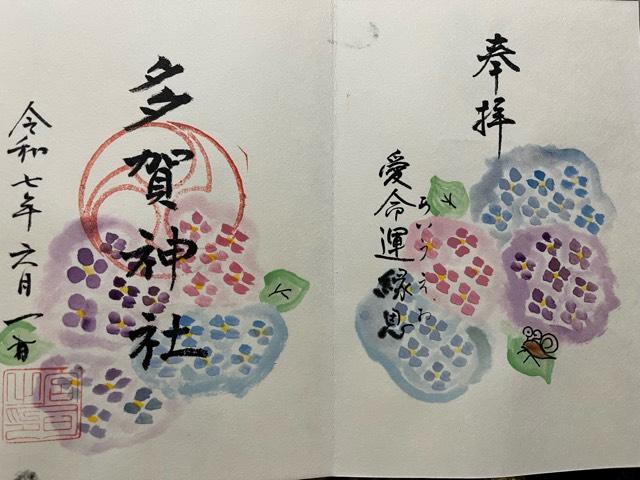 奉拝
愛命運縁恩
あいうえお
多賀神社
令和七年六月一日